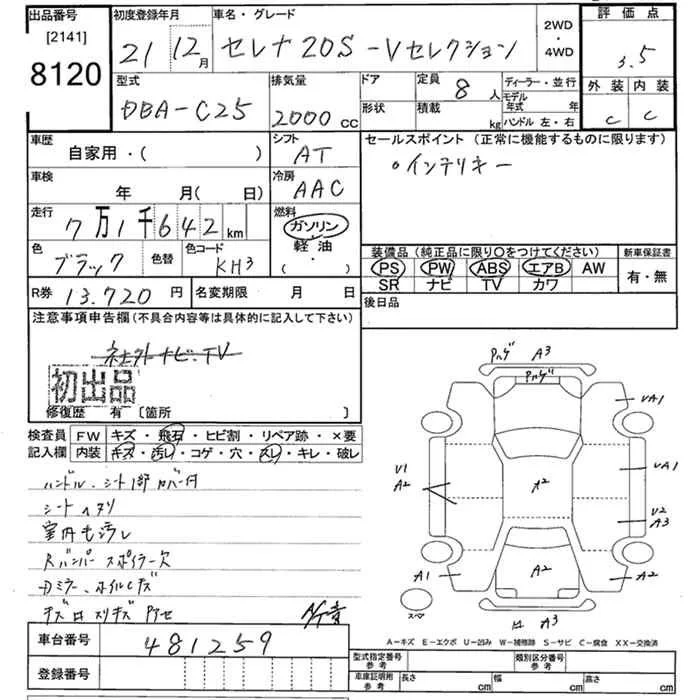 出品番号 初度登録年月 車名・グレード 2WD・4WD 評価点
[2141]
8120 21 12月 セレナ 20S -Vセレクション 3.5
外装 内装
C C
型式 排気量 ドア 定員 ディーラー・並行
DBA-C25 2000CC 8人 モデル年式 年
形状 積載 kg ハンドル 左・右
車歴 シフト セールスポイント (正常に機能するものに限ります)
自家用・( ) AT ・インテリキー
車検 冷房
年 月(日) AAC
走行 燃料
7万1千642km ガソリン・軽油・( )
色 色替 色コード 装備品(純正品に限り○をつけてください) 新車保証書
ブラック KH3 PS PW ABS エアB AW 有・無
SR ナビ TV カワ
R券 13.720円 名変期限 月 日 後日品
注意事項申告欄(不具合内容等は具体的に記入して下さい)
社外ナビ・TV
初出品
修復歴 有 [箇所 ]
検査員 FW キズ・飛石・ヒビ割・リペア跡・×要
記入欄 内装 キズ・汚レ・コゲ・穴・スレ・キレ・破レ
ハンドル、シート1部カバー付
シートヘタリ
室内も汚レ
Rバンパースポイラー欠
Dミラー、ホイルキズ
A3
A3
A1
UA1
UA1
U1
A2
A2
U2
A3
A1
A2
A2
A3
A-キズ E-エクボ U-凹み W-補修跡 S-サビ C-腐食 XX-交換済
車台番号 481259
登録番号
型式指定番号 参考 類別区分番号 参考
車庫証明用 参考 長さ cm 幅 cm 高さ cm